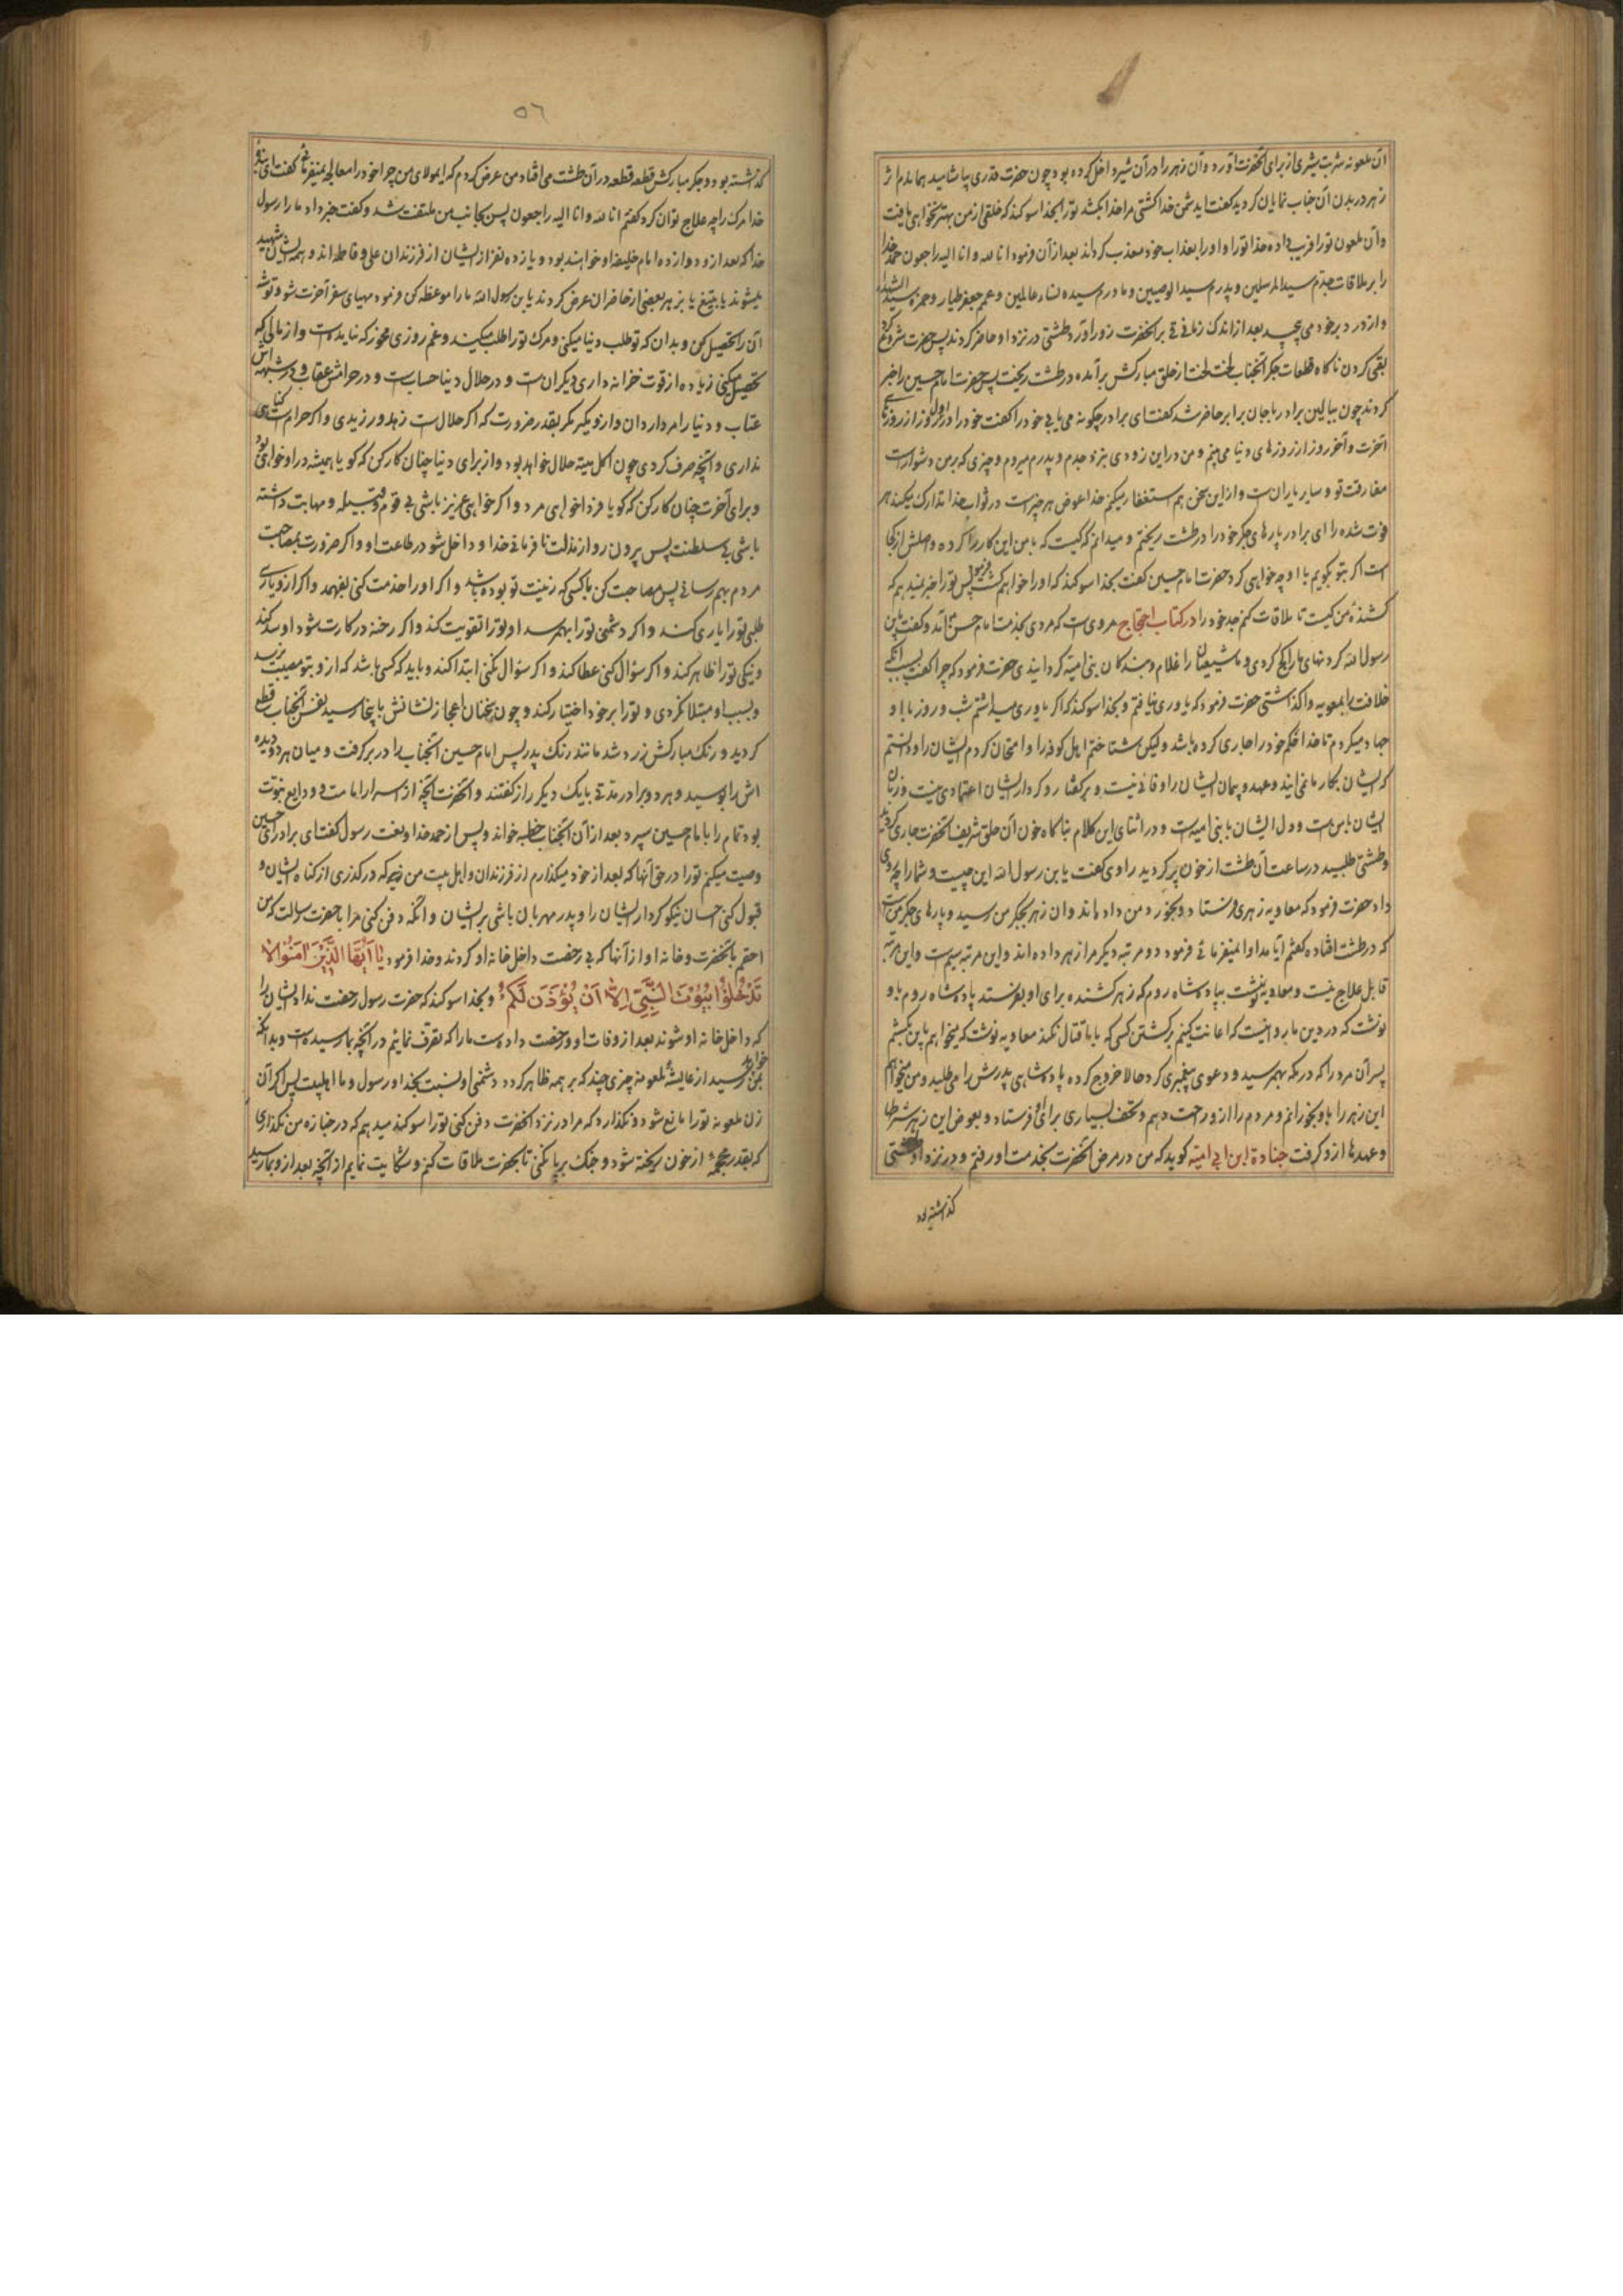 آن ملعونه شربت شیری از برای آنحضرت آورد و آن زهر را در آن شیر داخل کرده بود چون حضرت قدری بیاشامید همان دم اثر
زهر در بدن آن جناب نمایان کردید کفت ای دشمن خدا کشتی مرا خدا بکشد تو را بخدا سوکند که خلقی از من بهتر نخواهی یافت
و آن ملعون تو را فریب داده خدا تو را و او را بعذاب خود معذب کرداند بعد از آن فرمود انا لله و انا الیه راجعون حمد خدا
را بر ملاقات جدم سید المرسلین و پدرم سید الوصیین و مادرم سیده نساء عالمین و عمم جعفر طیار و حمزه سید الشهداء
و از درد بر خود می پیچید بعد از اندک زمانی قی بر آنحضرت زور آورد طشتی در نزد او حاضر کردند پس حضرت شروع کرد
بقی کردن ناکاه قطعات جکر آنجناب لخت لخت از حلق مبارکش برآمده در طشت ریخت پس حضرت امام حسین را خبر
کردند چون ببالین برادر با جان برابر حاضر شد کفت ای برادر چکونه می یابی خود را کفت خود را در اول روز از روزهای
آخرت و آخر روز از روزهای دنیا می بینم و من در این زودی بنزد جدم و پدرم میروم و چیزی که بر من دشوار است
مفارقت تو و سایر یاران است و از این سخن هم استغفار میکنم خدا عوض هر چیز است در ثواب خدا تدارک میکند هر
فوت شده را ای برادر پارهای جکر خود را در طشت ریختم و میدانم که کیست که با من این کار را کرده و اصلش از کجا
است اکر بتو بکویم با او چه خواهی کرد حضرت امام حسین کفت بخدا سوکند که او را خواهم کشت فرمود پس تو را خبر نمیدهم که
کشندهٔ من کیست تا ملاقات کنم جد خود را در کتاب احتجاج مروی است که مردی بخدمت امام حسن آمد و کفت یابن
رسول الله کردنهای ما را کج کردی و ما شیعیان را غلام و بندکان بنی امیه کردانیدی حضرت فرمود که چرا کفت بسبب آنکه
خلافت را بمعویه واکذاشتی حضرت فرمود که یاوری نیافتم و بخدا سوکند که اکر یاوری میداشتم شب و روز با او
جهاد میکردم تا خدا حکم خود را جاری کرده باشد و لیکن شناختم اهل کوفه را و امتحان کردم ایشان را و دانستم
که ایشان بکار ما نمی ایند و عهد و پیمان ایشان را وفائی نیست و بر کفتار و کردار ایشان اعتمادی نیست و زبان
ایشان با من است و دل ایشان با بنی امیه است و در اثنای این کلام بناکاه خون از حلق شریف آنحضرت جاری کردید
و طشتی طلبید در ساعت آن طشت از خون پر کردید راوی کفت یابن رسول الله این چیست و شما را چه روی
داد حضرت فرمود که معاویه زهری فرستاد و بخورد من داده اند و آن زهر بجکر من رسید و پارهای جکر من است
که در طشت افتاده کفتم آیا مداوا نمیفرمائی فرمود دو مرتبه دیکر مرا زهر داده اند و این مرتبه سیم است و این مرتبه
قابل علاج نیست و معاویه نوشت بپادشاه روم که زهر کشنده برای او بفرستد پادشاه روم باو
نوشت که در دین ما روا نیست که اعانت کنیم بر کشتن کسی که با ما قتال نکند معاویه نوشت که میخواهم باین بکشم
پسر آن مرد را که در مکه بهم رسید و دعوی پیغمبری کرد حالا خروج کرده پادشاهی پدرش را می طلبد و من میخواهم
این زهر را باو بخورانم و مردم را از او راحت دهم و تحف بسیاری برای او فرستاد و بعوض این زهر شرطها
و عهدها از او کرفت جنادة ابن ابی امیه کوید که من در مرض آنحضرت بخدمت او رفتم و در نزد او طشتی
کذاشته بود
۵٦
کذاشته بود و جکر مبارکش قطعه قطعه در آن طشت می افتاد من عرض کردم که ایمولای من چرا خود را معالجه نمیفرمائی کفت ای بنده
خدا مرک را چه علاج توان کرد کفتم انا لله و انا الیه راجعون پس بجانب من ملتفت شد و کفت خبر داد ما را رسول
خدا که بعد از او دوازده امام خلیفه او خواهند بود و یازده نفر از ایشان از فرزندان علی و فاطمه اند و همه ایشان شهید
میشوند یا بتیغ یا بزهر بعضی از حاضران عرض کردند یابن رسول الله ما را موعظه کن فرمود مهیای سفر آخرت شو و توشه
آن را تحصیل کن و بدان که تو طلب دنیا میکنی و مرک تو را طلب میکند و غم روزی مخور که نیامده است و از مالی که
تحصیل میکنی زیاده از قوت خزانه داری دیکران است و در حلال دنیا حساب است و در حرامش عقاب و در شبهه اش
عتاب و دنیا را مردار دان و از او مکیر مکر بقدر ضرورت که اکر حلال است زهد ورزیدی و اکر حرام است کناهی
نداری و آنچه صرف کردی چون اکل میته حلال خواهد بود و از برای دنیا چنان کار کن که کویا همیشه در او خواهی بود
و برای آخرت چنان کار کن که کویا فردا خواهی مرد و اکر خواهی عزیز باشی بی قوم و قبیله و مهابت داشته
باشی بی سلطنت پس بیرون رو از مذلت نافرمانی خدا و داخل شو در طاعت او و اکر ضرورت بمصاحبت
مردم بهم رسانی پس مصاحبت کن با کسی که زینت تو بوده باشد و اکر او را خدمت کنی بفهمد و اکر از او یاری
طلبی تو را یاری کند و اکر دشمنی تو را بهم رسد او تو را تقویت کند و اکر رخنه در کارت شود او سد کند
و نیکی تو را ظاهر کند و اکر سؤال کنی عطا کند و اکر سؤال نکنی ابتدا کند و باید که کسی باشد که از او بتو مصیبت نرسد
و بسبب او مبتلا نکردی و تو را بر خود اختیار کند و چون سخنان اعجاز نشانش باینجا رسید نفس آنجناب قطع
کردید و رنک مبارکش زرد شد مانند رنک پدر پس امام حسین آنجناب را در بر کرفت و میان هر دو دیده
اش را بوسید و هر دو برادر مدتی با یک دیکر راز کفتند و آنحضرت آنچه از اسرار امامت و ودایع نبوت
بود تمام را با امام حسین سپرد بعد از آن آنجناب خطبه خواند و پس از حمد خدا و نعت رسول کفت ای برادر ای حسین
وصیت میکنم تو را در حق آنها که بعد از خود میکذارم از فرزندان و اهل بیت من که درکذری از کناه ایشان و
قبول کنی احسان نیکو کردار ایشان را و پدر مهربان باشی بر ایشان و آنکه دفن کنی مرا با حضرت رسالت که من
احقم بآنحضرت و خانه او از آنها که بی رخصت داخل خانه او کردند و خدا فرمود یا اَیُّهَا الَّذِیْنَ اٰمَنُوا لا
تَدْخُلُوْا بُیُوْتَ النَّبِیِّ اِلّا اَنْ یُؤْذَنَ لَکُمْ و بخدا سوکند که حضرت رسول رخصت نداد ایشان را
که داخل خانه او شوند بعد از وفات او و رخصت داده است ما را که تصرف نمائیم در آنچه بما رسیده است و بدانکه
بمن خواهد رسید از عایشهٔ ملعونه چیزی چند که بر همه ظاهر کردد دشمنی او نسبت بخدا و رسول و ما اهلبیت پس اکر آن
زن ملعونه تو را مانع شود و نکذارد که مرا در نزد آنحضرت دفن کنی تو را سوکند میدهم که در جنازه من نکذاری
که بقدر محجمهٔ از خون ریخته شود و جنک برپا نکنی تا بحضرت ملاقات کنم و شکایت نمایم از آنچه بعد از او بما رسید